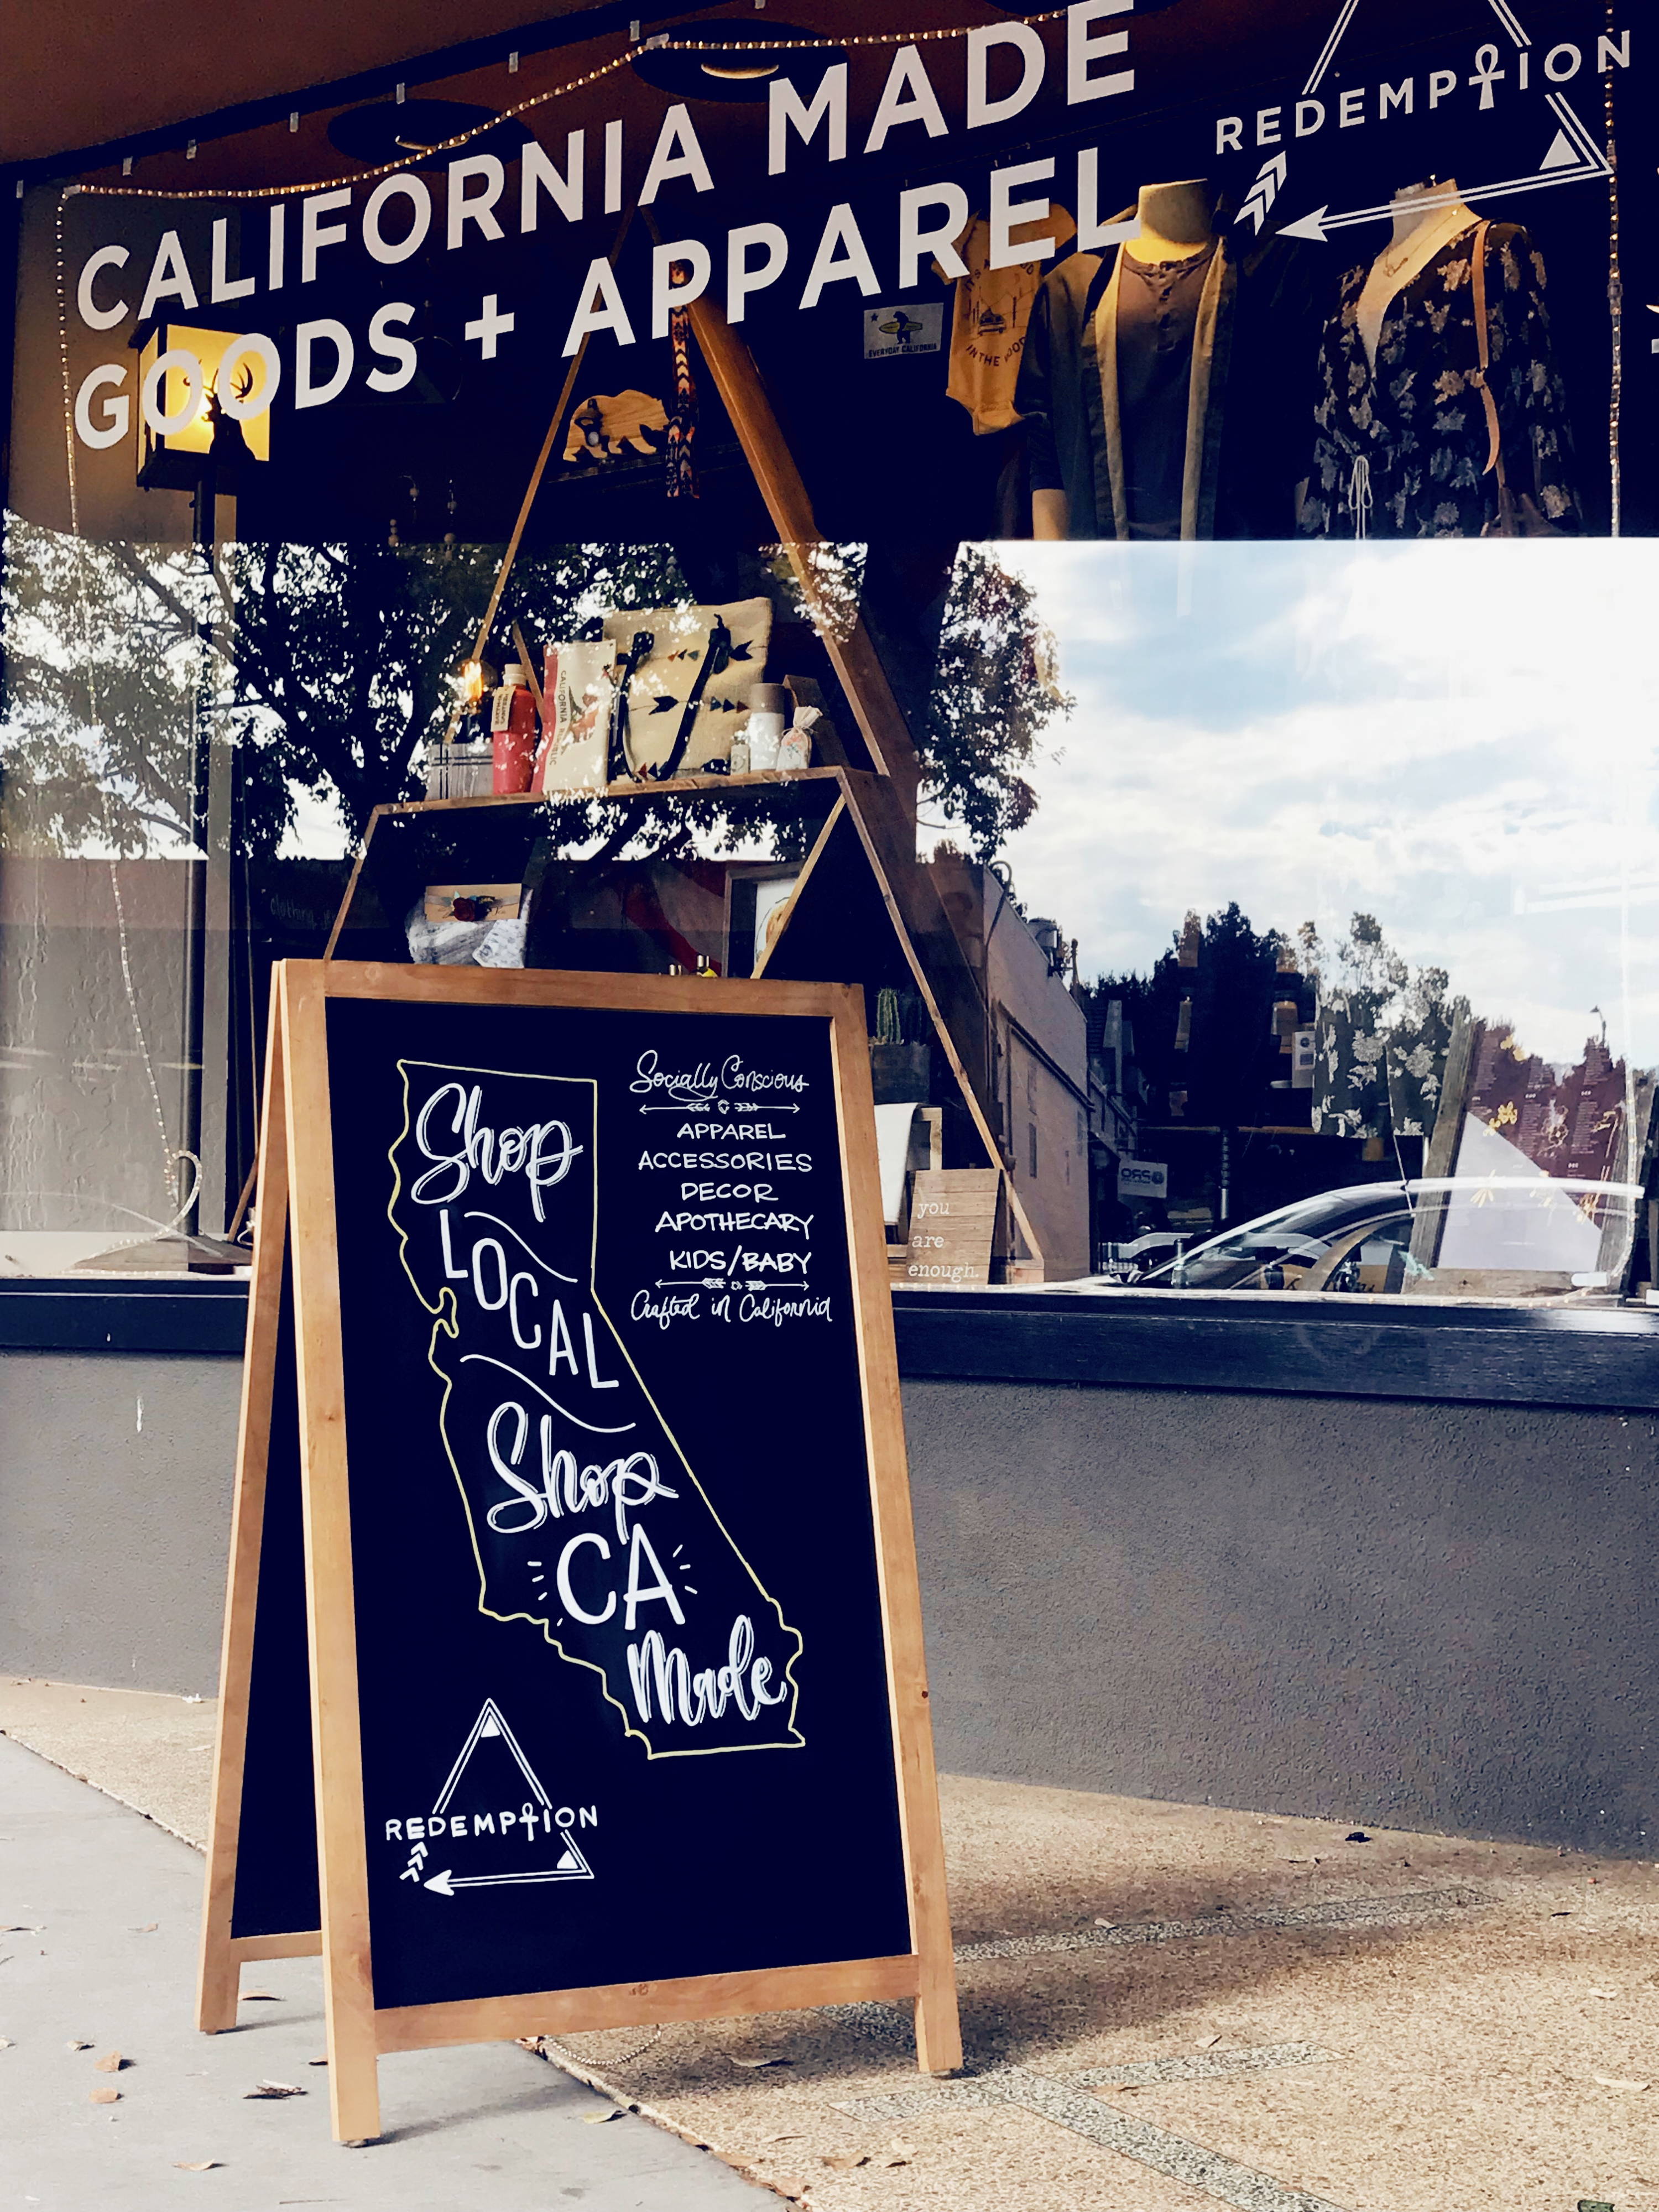 CALIFORNIA MADE
GOODS + APPAREL
REDEMPTION
EVERYDAY CALIFORNIA
IN THE WOODS
CALIFORNIA REPUBLIC
clothing
you
are
enough.
Shop
LOCAL
Shop
CA
Made
Socially Conscious
APPAREL
ACCESSORIES
DECOR
APOTHECARY
KIDS/BABY
Crafted in California
REDEMPTION